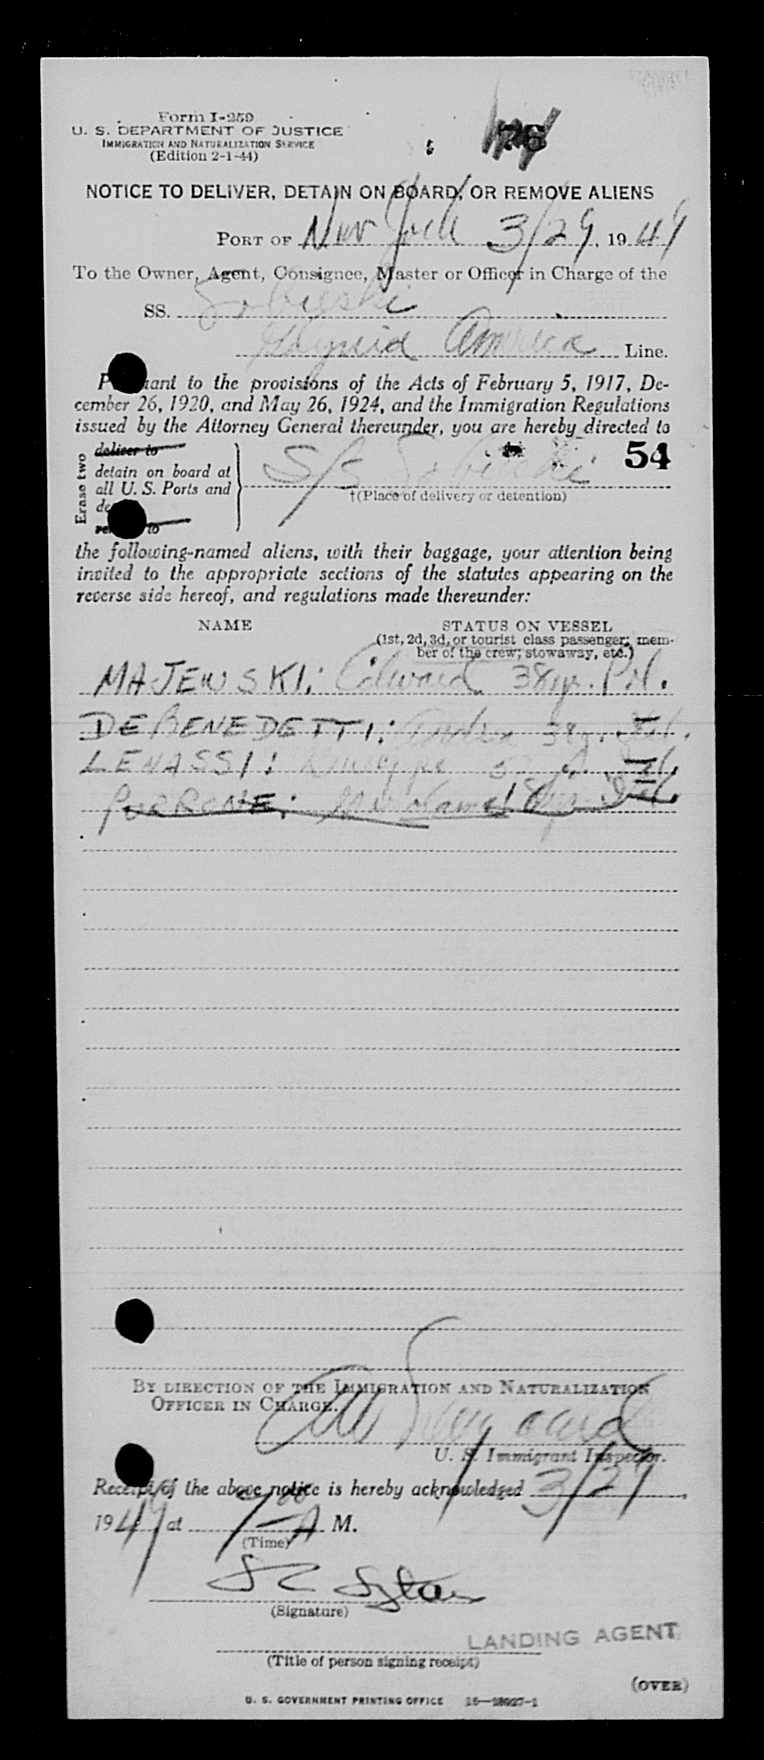 Form I-259
U. S. DEPARTMENT OF JUSTICE
IMMIGRATION AND NATURALIZATION SERVICE
(Edition 2-1-44)
76
NOTICE TO DELIVER, DETAIN ON BOARD, OR REMOVE ALIENS
PORT OF New York 3/29, 1949
To the Owner, Agent, Consignee, Master or Officer in Charge of the
SS. Sobieski
Gdynia America Line.
Pursuant to the provisions of the Acts of February 5, 1917, De-
cember 26, 1920, and May 26, 1924, and the Immigration Regulations
issued by the Attorney General thereunder, you are hereby directed to
Erase two
deliver to
detain on board at
all U. S. Ports and
S/S Sobieski 54
†(Place of delivery or detention)
the following-named aliens, with their baggage, your attention being
invited to the appropriate sections of the statutes appearing on the
reverse side hereof, and regulations made thereunder:
NAME STATUS ON VESSEL
(1st, 2d, 3d, or tourist class passenger; mem-
ber of the crew; stowaway, etc.)
MAJEWSKI: Edward 38yr. Pol.
DEBENEDETTI: Andrea 38y. Ital.
LENASSI: Giuseppe
PURRONE:
BY DIRECTION OF THE IMMIGRATION AND NATURALIZATION
OFFICER IN CHARGE.
U. S. Immigrant Inspector.
Receipt of the above notice is hereby acknowledged 3/29,
1949 at 7 00 A M.
(Time)
(Signature)
LANDING AGENT
(Title of person signing receipt)
(OVER)
U. S. GOVERNMENT PRINTING OFFICE 16—18927-1